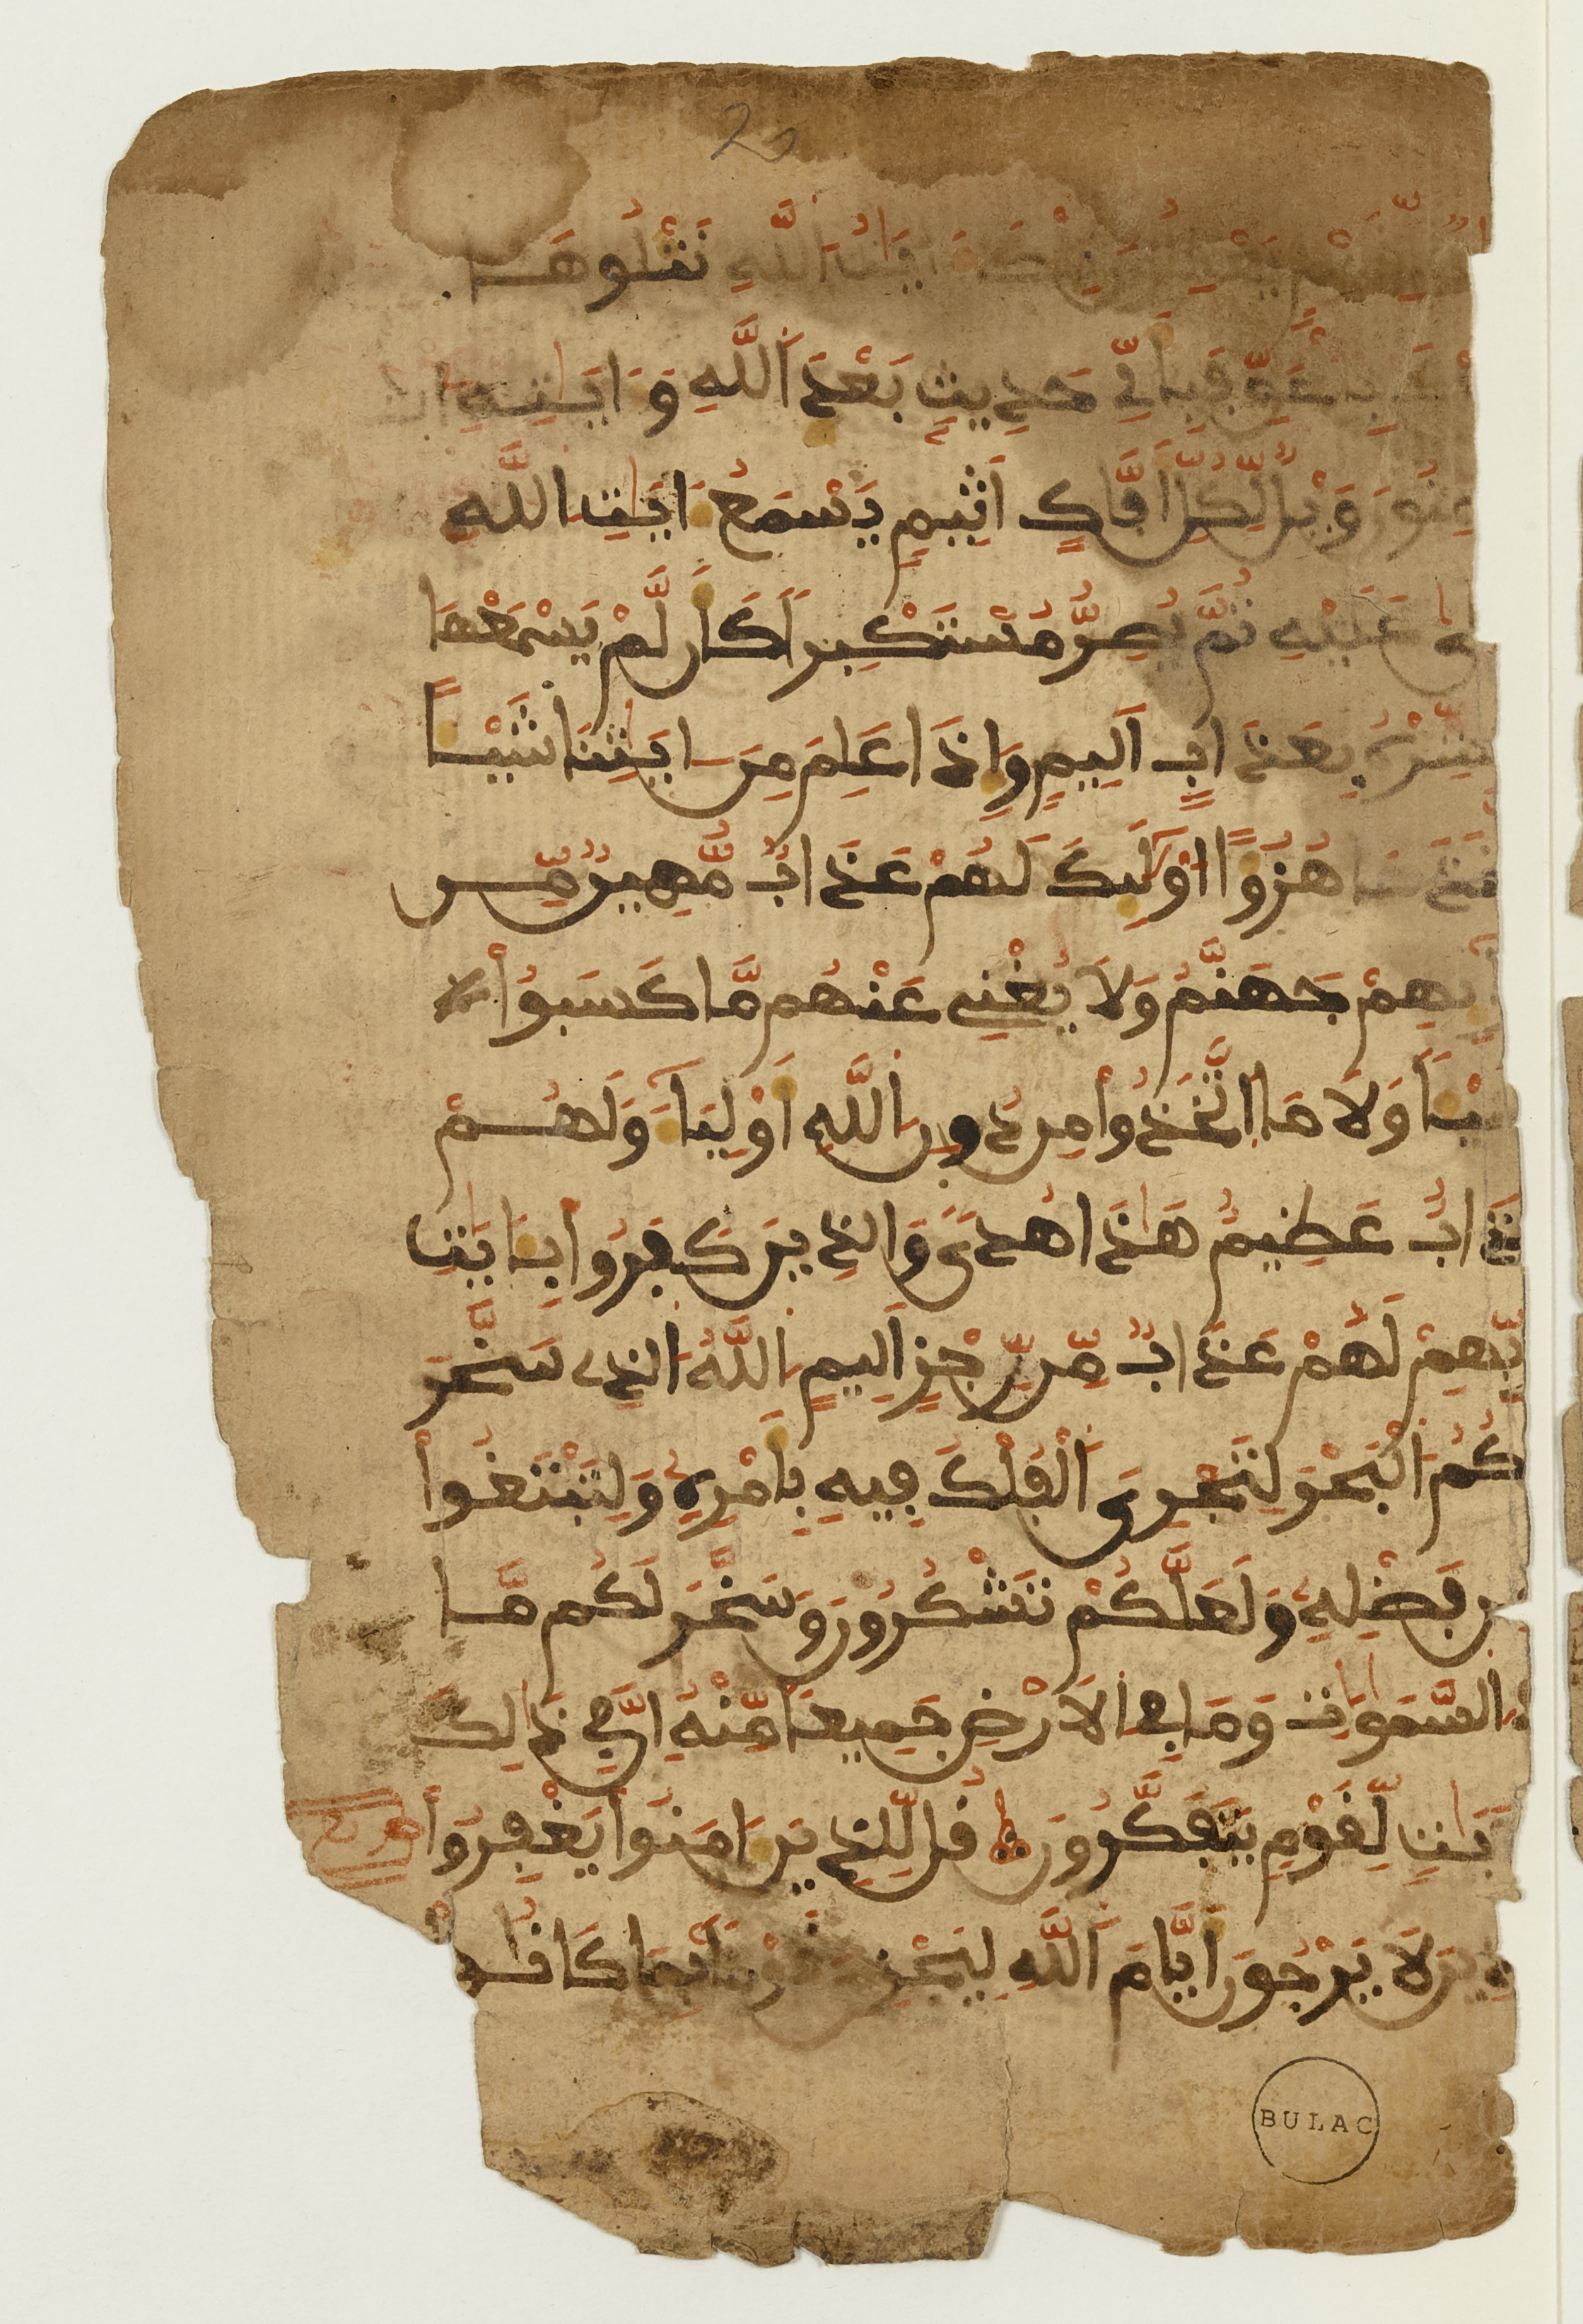 20
تِلْكَ ءَايَٰتُ اللَّهِ نَتْلُوهَا
فَبِأَيِّ حَدِيثٍ بَعْدَ اَللَّهِ وَءَايَٰتِهِ
وَيْلٌ لِّكُلِّ أَفَّاكٍ أَثِيمٍ يَسْمَعُ ءَايَٰتِ اللَّهِ
عَلَيْهِ ثُمَّ يُصِرُّ مُسْتَكْبِراً كَأَن لَّمْ يَسْمَعْهَا
بِعَذَابٍ أَلِيمٍ وَإِذَا عَلِمَ مِنَ ايَٰتِنَا شَيْـاً
هُزُوًا اوْلَٰٓئِكَ لَهُمْ عَذَابٌ مُّهِينٌ مِّنْ
جَهَنَّمُ وَلَا يُغْنِي عَنْهُم مَّا كَسَبُواْ
شَيْـاً وَلَا مَا اَتَّخَذُواْ مِن دُونِ اِللَّهِ أَوْلِيَآءَ وَلَهُمْ
عَذَابٌ عَظِيمٌ هَٰذَا هُدىً وَالذِينَ كَفَرُواْ بِـَٔايَٰتِ
رَبِّهِمْ لَهُمْ عَذَابٌ مِّن رِّجْزٍ أَلِيمٍ اِللَّهُ الذِي سَخَّرَ
لَكُمُ اَلْبَحْرَ لِتَجْرِيَ اَلْفُلْكُ فِيهِ بِأَمْرِهِ وَلِتَبْتَغُواْ
مِن فَضْلِهِ وَلَعَلَّكُمْ تَشْكُرُونَ وَسَخَّرَ لَكُم مَّا
فِي السَّمَٰوَٰتِ وَمَا فِي الَارْضِ جَمِيعاً مِّنْهُ إِنَّ فِي ذَٰلِكَ
ءَلَايَٰتٍ لِّقَوْمٍ يَتَفَكَّرُونَ قُل لِّلذِينَ ءَامَنُواْ يَغْفِرُواْ
لِلذِينَ لَا يَرْجُونَ أَيَّامَ اَللَّهِ لِيَجْزِيَ قَوْماً بِمَا كَانُو
BULAC